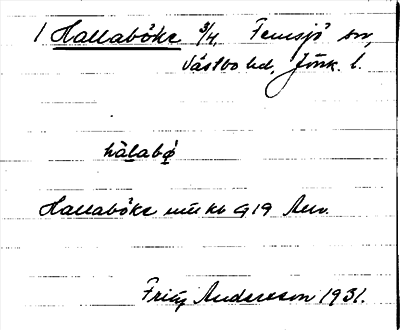 1 Hallaböke 3/4, Femsjö sn,
Västbo hd, Jönk. l.
hàlabø̀
Hallaböke mtl kb 919 Anv.
Fritz Andersson 1931.